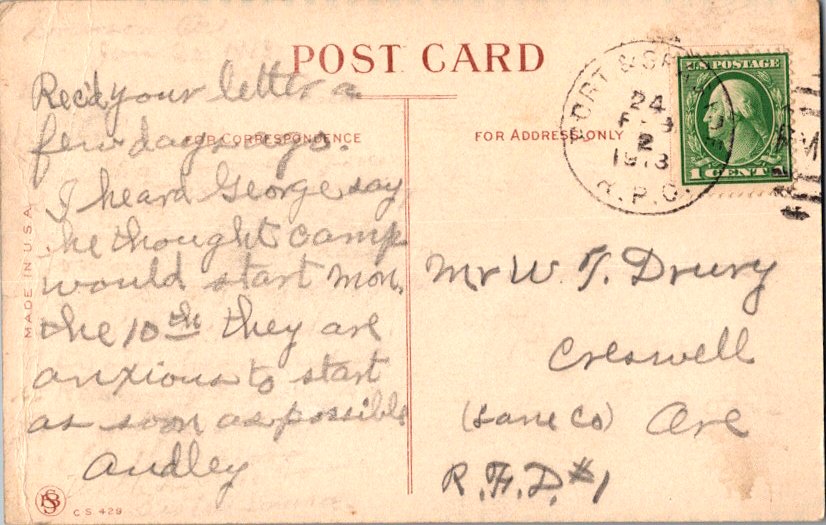 POST CARD
FOR CORRESPONDENCE
FOR ADDRESS ONLY
Rec'd your letter a
few days ago.
I heard George say
he thought camp
would start Mon.
the 10th they are
anxious to start
as soon as possible
Audley
MADE IN U.S.A.
C S 429
PORT &
24
2
1913
R.P.O.
U.S. POSTAGE
1 CENT
Mr W. T. Drury
Creswell
(Lane Co) Ore
R.F.D. #1